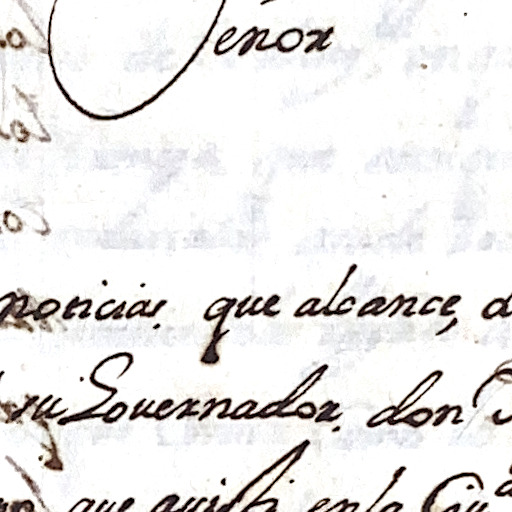 Señor
noticias que alcance, d
su Governador don
que quisi en la Ciu^d